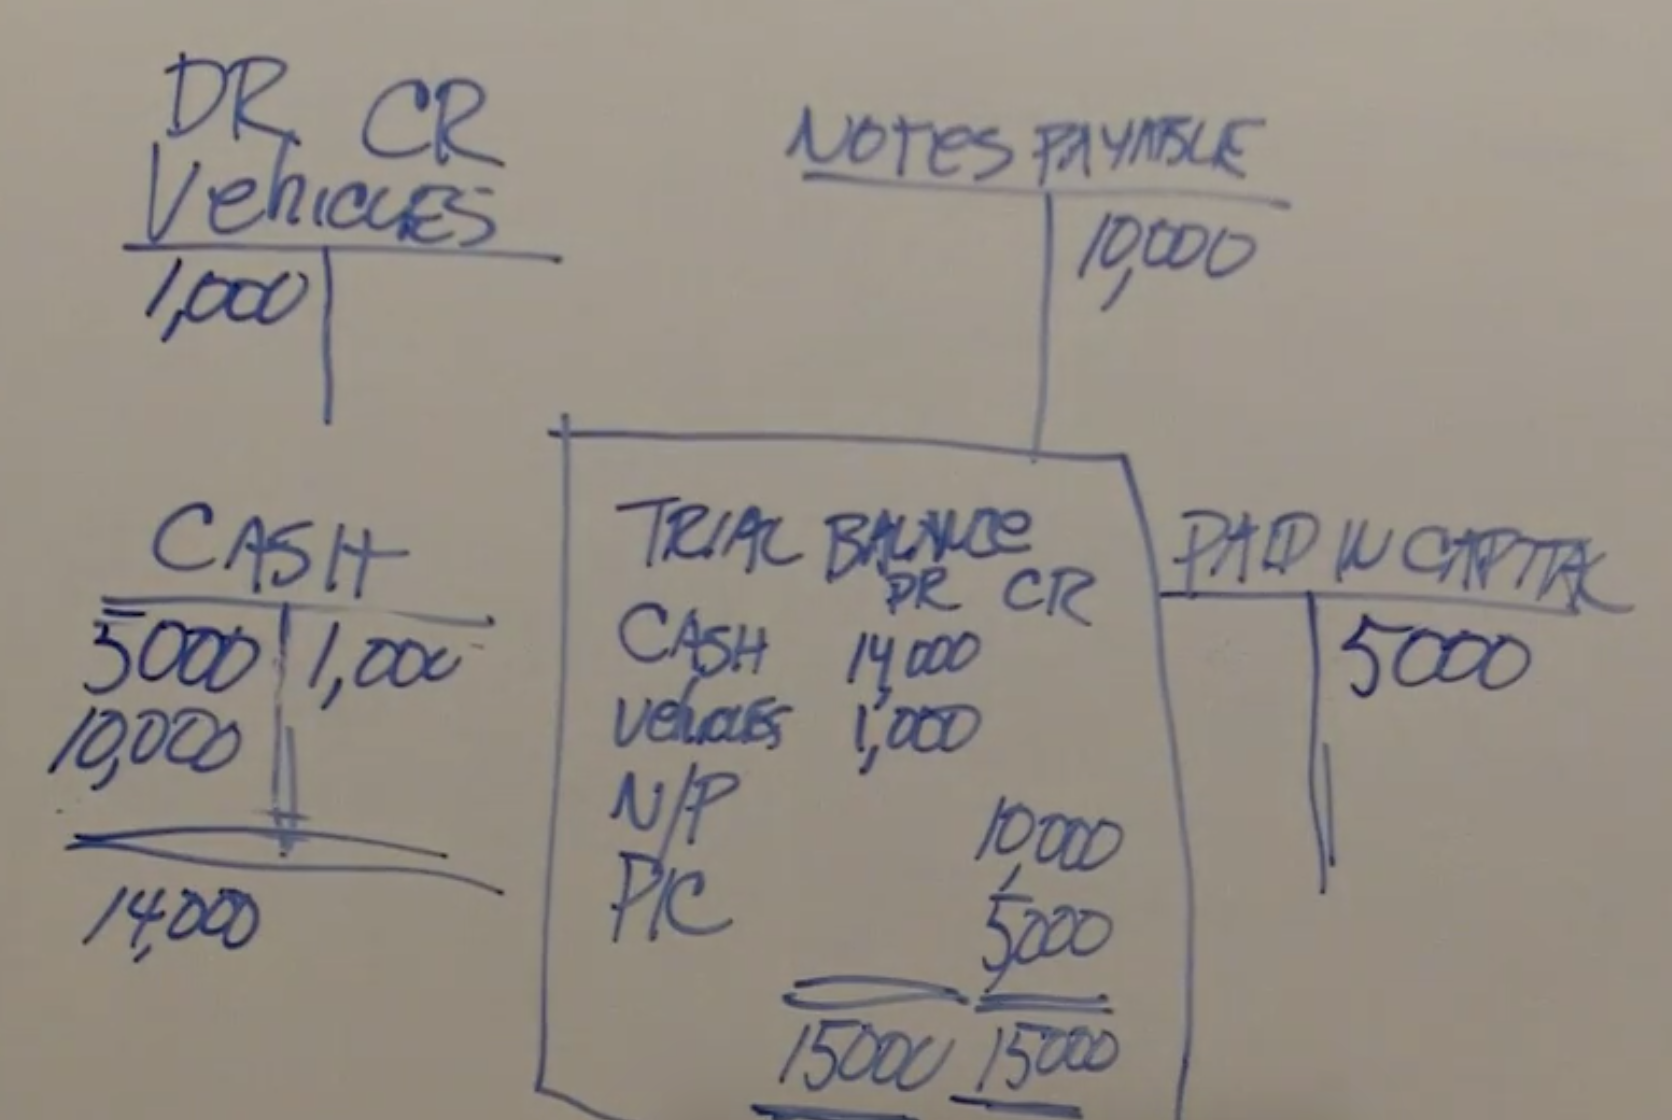 DR CR
Vehicles
1,000
NOTES PAYABLE
10,000
CASH
5000 1,000
10,000
14,000
TRIAL BALANCE
DR CR
CASH 14,000
Vehicles 1,000
N/P 10,000
P/C 5,000
15000 15000
PAID IN CAPITAL
5000